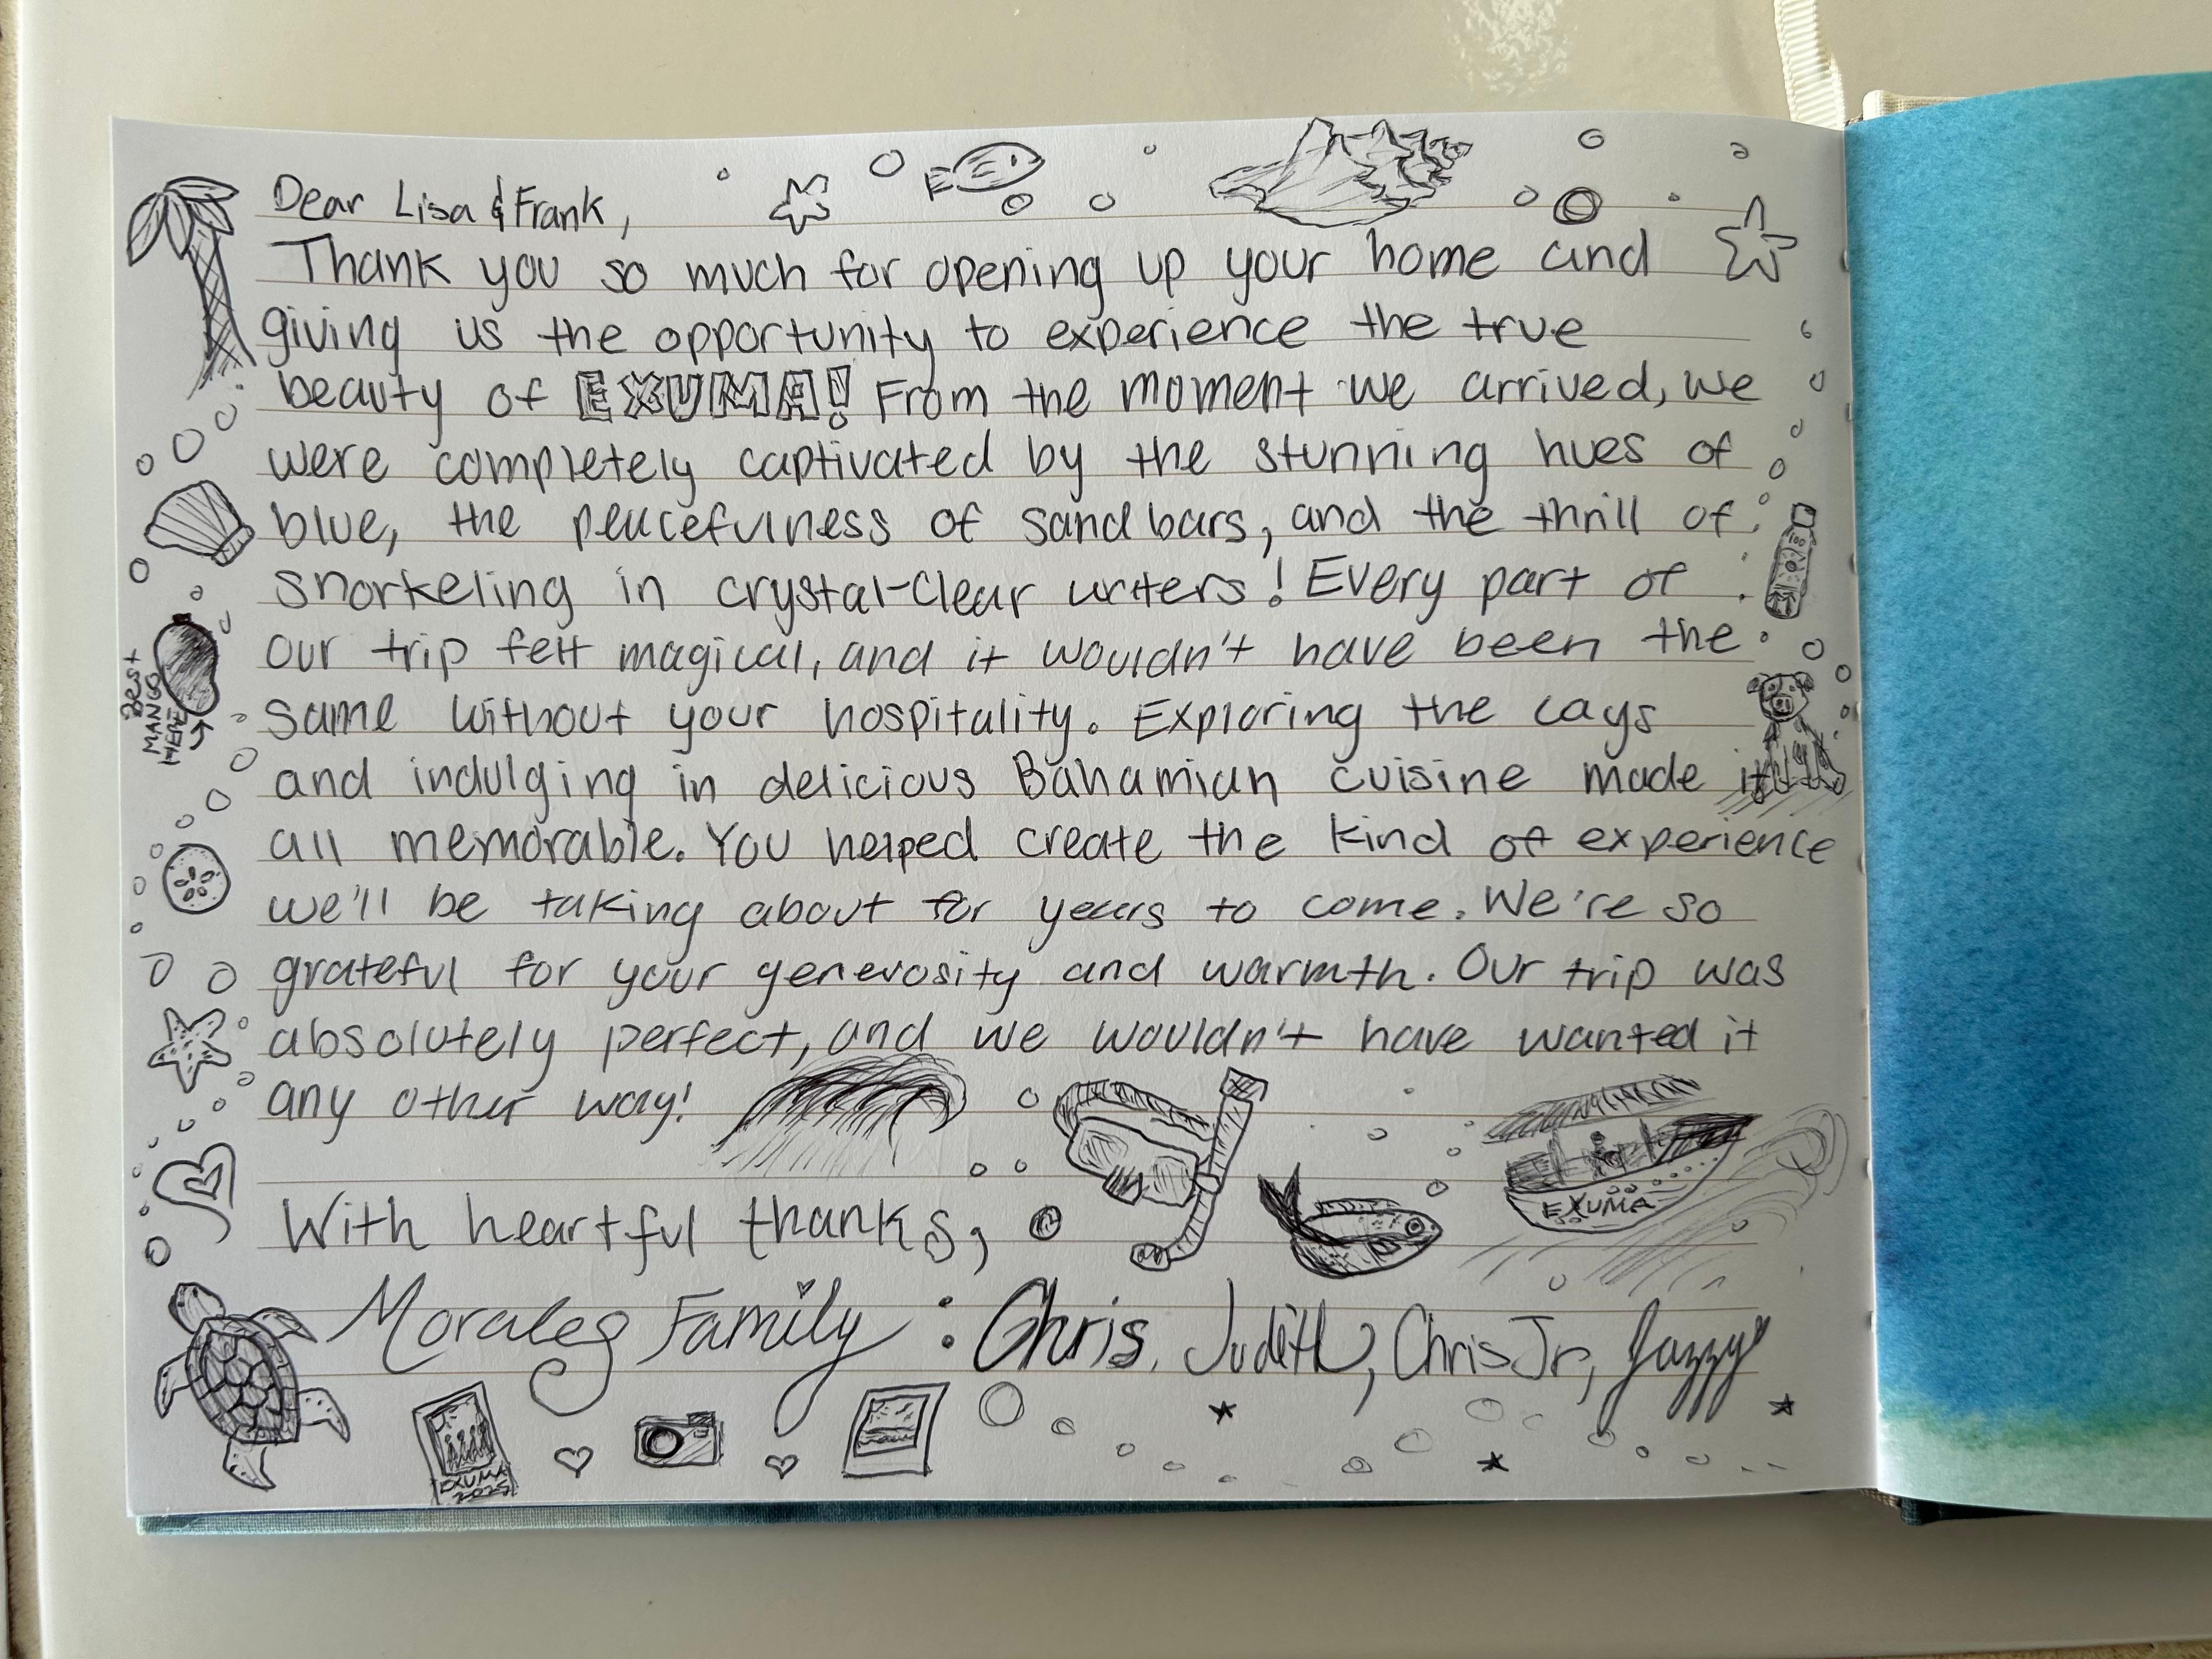 Dear Lisa & Frank,
Thank you so much for opening up your home and
giving us the opportunity to experience the true
beauty of EXUMA! From the moment we arrived, we
were completely captivated by the stunning hues of
blue, the peacefulness of sandbars, and the thrill of
snorkeling in crystal-clear waters! Every part of
our trip felt magical, and it wouldn't have been the
same without your hospitality. Exploring the cays
and indulging in delicious Bahamian cuisine made it
all memorable. You helped create the kind of experience
we'll be talking about for years to come. We're so
grateful for your generosity and warmth. Our trip was
absolutely perfect, and we wouldn't have wanted it
any other way!
With heartful thanks,
Morales Family: Chris, Judith, Chris Jr, Jazzy
BEST
MANGO
HERE
100
EXUMA
EXUMA
2025